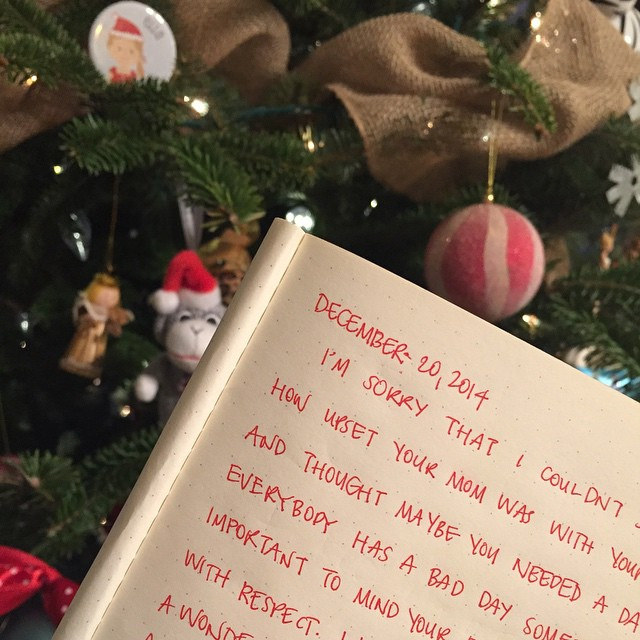 DECEMBER 20, 2014
I'M SORRY THAT I COULDN'T
HOW UPSET YOUR MOM WAS WITH YOUR
AND THOUGHT MAYBE YOU NEEDED A
EVERYBODY HAS A BAD DAY
IMPORTANT TO MIND YOUR
WITH RESPECT.
A